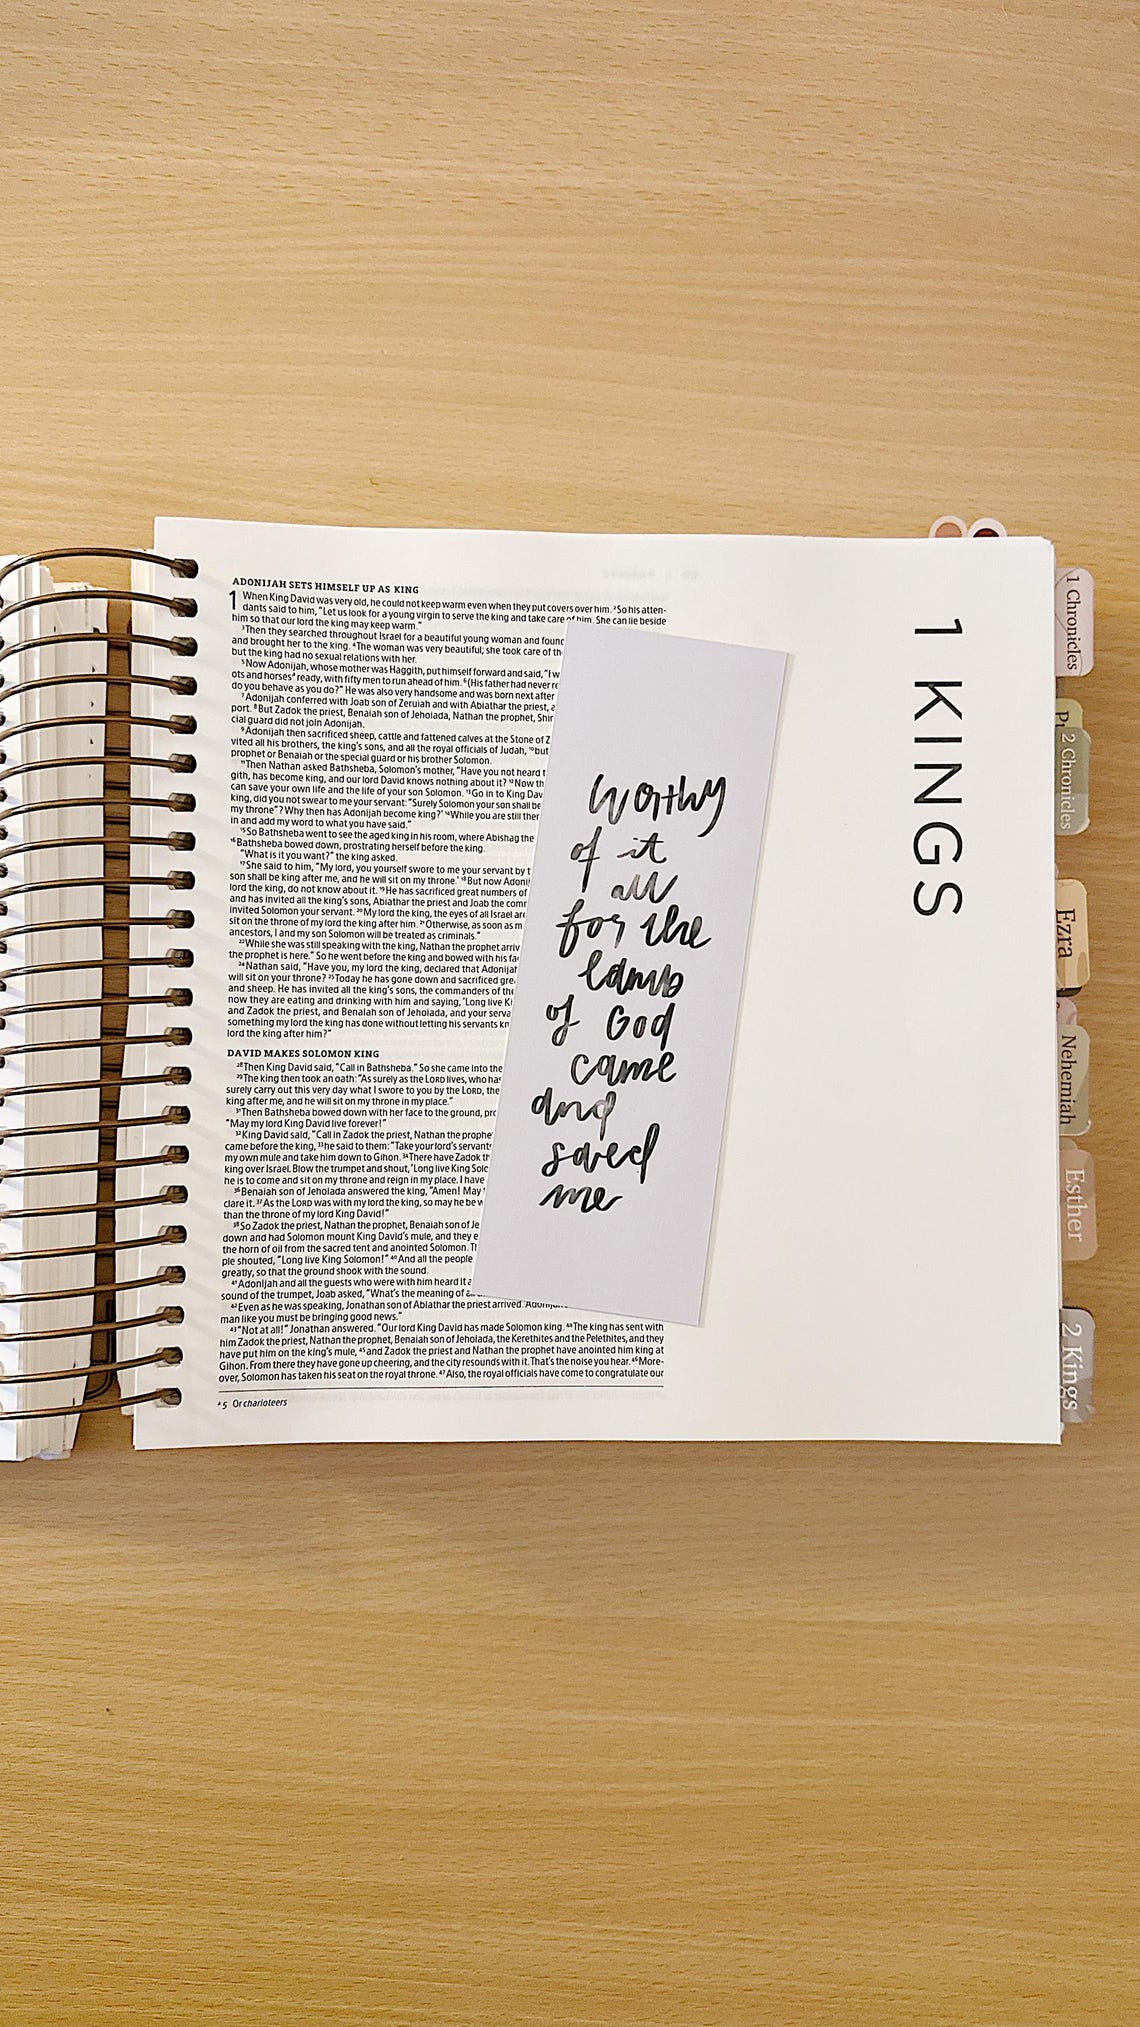 ADONIJAH SETS HIMSELF UP AS KING
1 When King David was very old, he could not keep warm even when they put covers over him. ²So his atten-
dants said to him, "Let us look for a young virgin to serve the king and take care of him. She can lie beside
him so that our lord the king may keep warm."
³Then they searched throughout Israel for a beautiful young woman and found
and brought her to the king. ⁴The woman was very beautiful; she took care of th
but the king had no sexual relations with her.
⁵Now Adonijah, whose mother was Haggith, put himself forward and said, "I w
ots and horsesᵃ ready, with fifty men to run ahead of him. ⁶(His father had never re
do you behave as you do?" He was also very handsome and was born next after
⁷Adonijah conferred with Joab son of Zeruiah and with Abiathar the priest, a
port. ⁸But Zadok the priest, Benaiah son of Jehoiada, Nathan the prophet, Shim
cial guard did not join Adonijah.
⁹Adonijah then sacrificed sheep, cattle and fattened calves at the Stone of Z
vited all his brothers, the king's sons, and all the royal officials of Judah, ¹⁰but
prophet or Benaiah or the special guard or his brother Solomon.
¹¹Then Nathan asked Bathsheba, Solomon's mother, "Have you not heard t
gith, has become king, and our lord David knows nothing about it? ¹²Now th
can save your own life and the life of your son Solomon. ¹³Go in to King Dav
king, did you not swear to me your servant: "Surely Solomon your son shall be
my throne"? Why then has Adonijah become king?' ¹⁴While you are still ther
in and add my word to what you have said."
¹⁵So Bathsheba went to see the aged king in his room, where Abishag the
¹⁶Bathsheba bowed down, prostrating herself before the king.
"What is it you want?" the king asked.
¹⁷She said to him, "My lord, you yourself swore to me your servant by t
son shall be king after me, and he will sit on my throne.' ¹⁸But now Adoni
lord the king, do not know about it. ¹⁹He has sacrificed great numbers of
and has invited all the king's sons, Abiathar the priest and Joab the comm
invited Solomon your servant. ²⁰My lord the king, the eyes of all Israel are
sit on the throne of my lord the king after him. ²¹Otherwise, as soon as m
ancestors, I and my son Solomon will be treated as criminals."
²²While she was still speaking with the king, Nathan the prophet arriv
the prophet is here." So he went before the king and bowed with his fa
²⁴Nathan said, "Have you, my lord the king, declared that Adonijah
will sit on your throne? ²⁵Today he has gone down and sacrificed gre
and sheep. He has invited all the king's sons, the commanders of the
now they are eating and drinking with him and saying, 'Long live Ki
and Zadok the priest, and Benaiah son of Jehoiada, and your serva
something my lord the king has done without letting his servants kn
lord the king after him?"
DAVID MAKES SOLOMON KING
²⁸Then King David said, "Call in Bathsheba." So she came into the
²⁹The king then took an oath: "As surely as the LORD lives, who has
surely carry out this very day what I swore to you by the LORD, the
king after me, and he will sit on my throne in my place."
³¹Then Bathsheba bowed down with her face to the ground, pro
"May my lord King David live forever!"
³²King David said, "Call in Zadok the priest, Nathan the prophe
came before the king, ³³he said to them: "Take your lord's servants
my own mule and take him down to Gihon. ³⁴There have Zadok th
king over Israel. Blow the trumpet and shout, 'Long live King Solo
he is to come and sit on my throne and reign in my place. I have
³⁶Benaiah son of Jehoiada answered the king, "Amen! May
clare it. ³⁷As the LORD was with my lord the king, so may he be w
than the throne of my lord King David!"
³⁸So Zadok the priest, Nathan the prophet, Benaiah son of Je
down and had Solomon mount King David's mule, and they e
the horn of oil from the sacred tent and anointed Solomon. Th
ple shouted, "Long live King Solomon!" ⁴⁰And all the people
greatly, so that the ground shook with the sound.
⁴¹Adonijah and all the guests who were with him heard it a
sound of the trumpet, Joab asked, "What's the meaning of a
⁴²Even as he was speaking, Jonathan son of Abiathar the priest arrived.
man like you must be bringing good news."
⁴³"Not at all!" Jonathan answered. "Our lord King David has made Solomon king. ⁴⁴The king has sent with
him Zadok the priest, Nathan the prophet, Benaiah son of Jehoiada, the Kerethites and the Pelethites, and they
have put him on the king's mule, ⁴⁵and Zadok the priest and Nathan the prophet have anointed him king at
Gihon. From there they have gone up cheering, and the city resounds with it. That's the noise you hear. ⁴⁶More-
over, Solomon has taken his seat on the royal throne. ⁴⁷Also, the royal officials have come to congratulate our
ᵃ 5 Or charioteers
worthy
of it
all
for the
lamb
of God
came
and
saved
me
1 KINGS
1 Chronicles
2 Chronicles
Ezra
Nehemiah
Esther
2 Kings